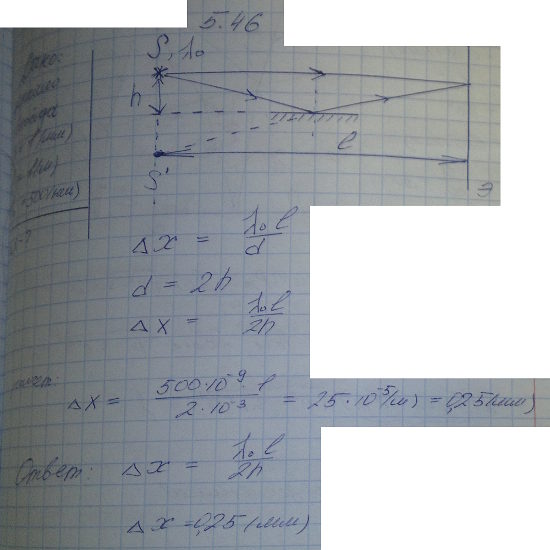 5.46
S, λ₀
h
l
S'
Э
Δx = λ₀l/d
d = 2h
Δx = λ₀l/2h
Δx = 500·10⁻⁹ l/2·10⁻³ = 25·10⁻⁵(м) = 0,25(мм)
Ответ: Δx = λ₀l/2h
Δx = 0,25 (мм)